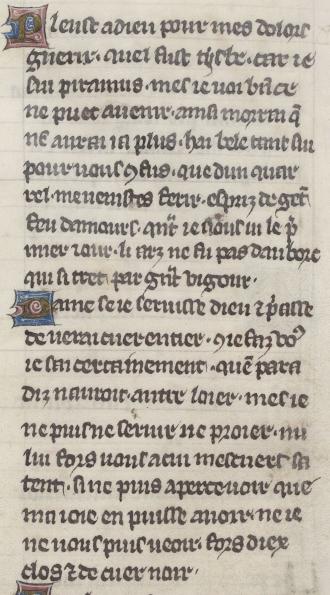 Pleust a dieu pour mes dolors
guerir. quel fust thysbe. car ie
sui piramus. mes ie voi bn̄ ce
ne puet auenir. ainsi morrai q̄
nē aurai ia plus. hai bele tant sui
pour uous 9quis. que dun quar
rel me uenistes ferir. espris de gēt
feu damours. qn̄t ie uous ui le p̄
mier iour. li arz ne fu pas daubore
qui si tret par grāt vigour.
Dame se ie seruisse dieu ⁊ p̄asse
de uerai cuer entier. 9 ie faz vo9
ie sai certainement. quē para
diz nauroit autre loier. mes ie
ne puis ne seruir ne proier. nu
lui fors uous a cui mes cuers sa
tent. si ne puis aperceuoir que
ma ioie en puisse auoir. ne ie
ne uous puis ueoir. fors diex
clos ⁊ de cuer noir.